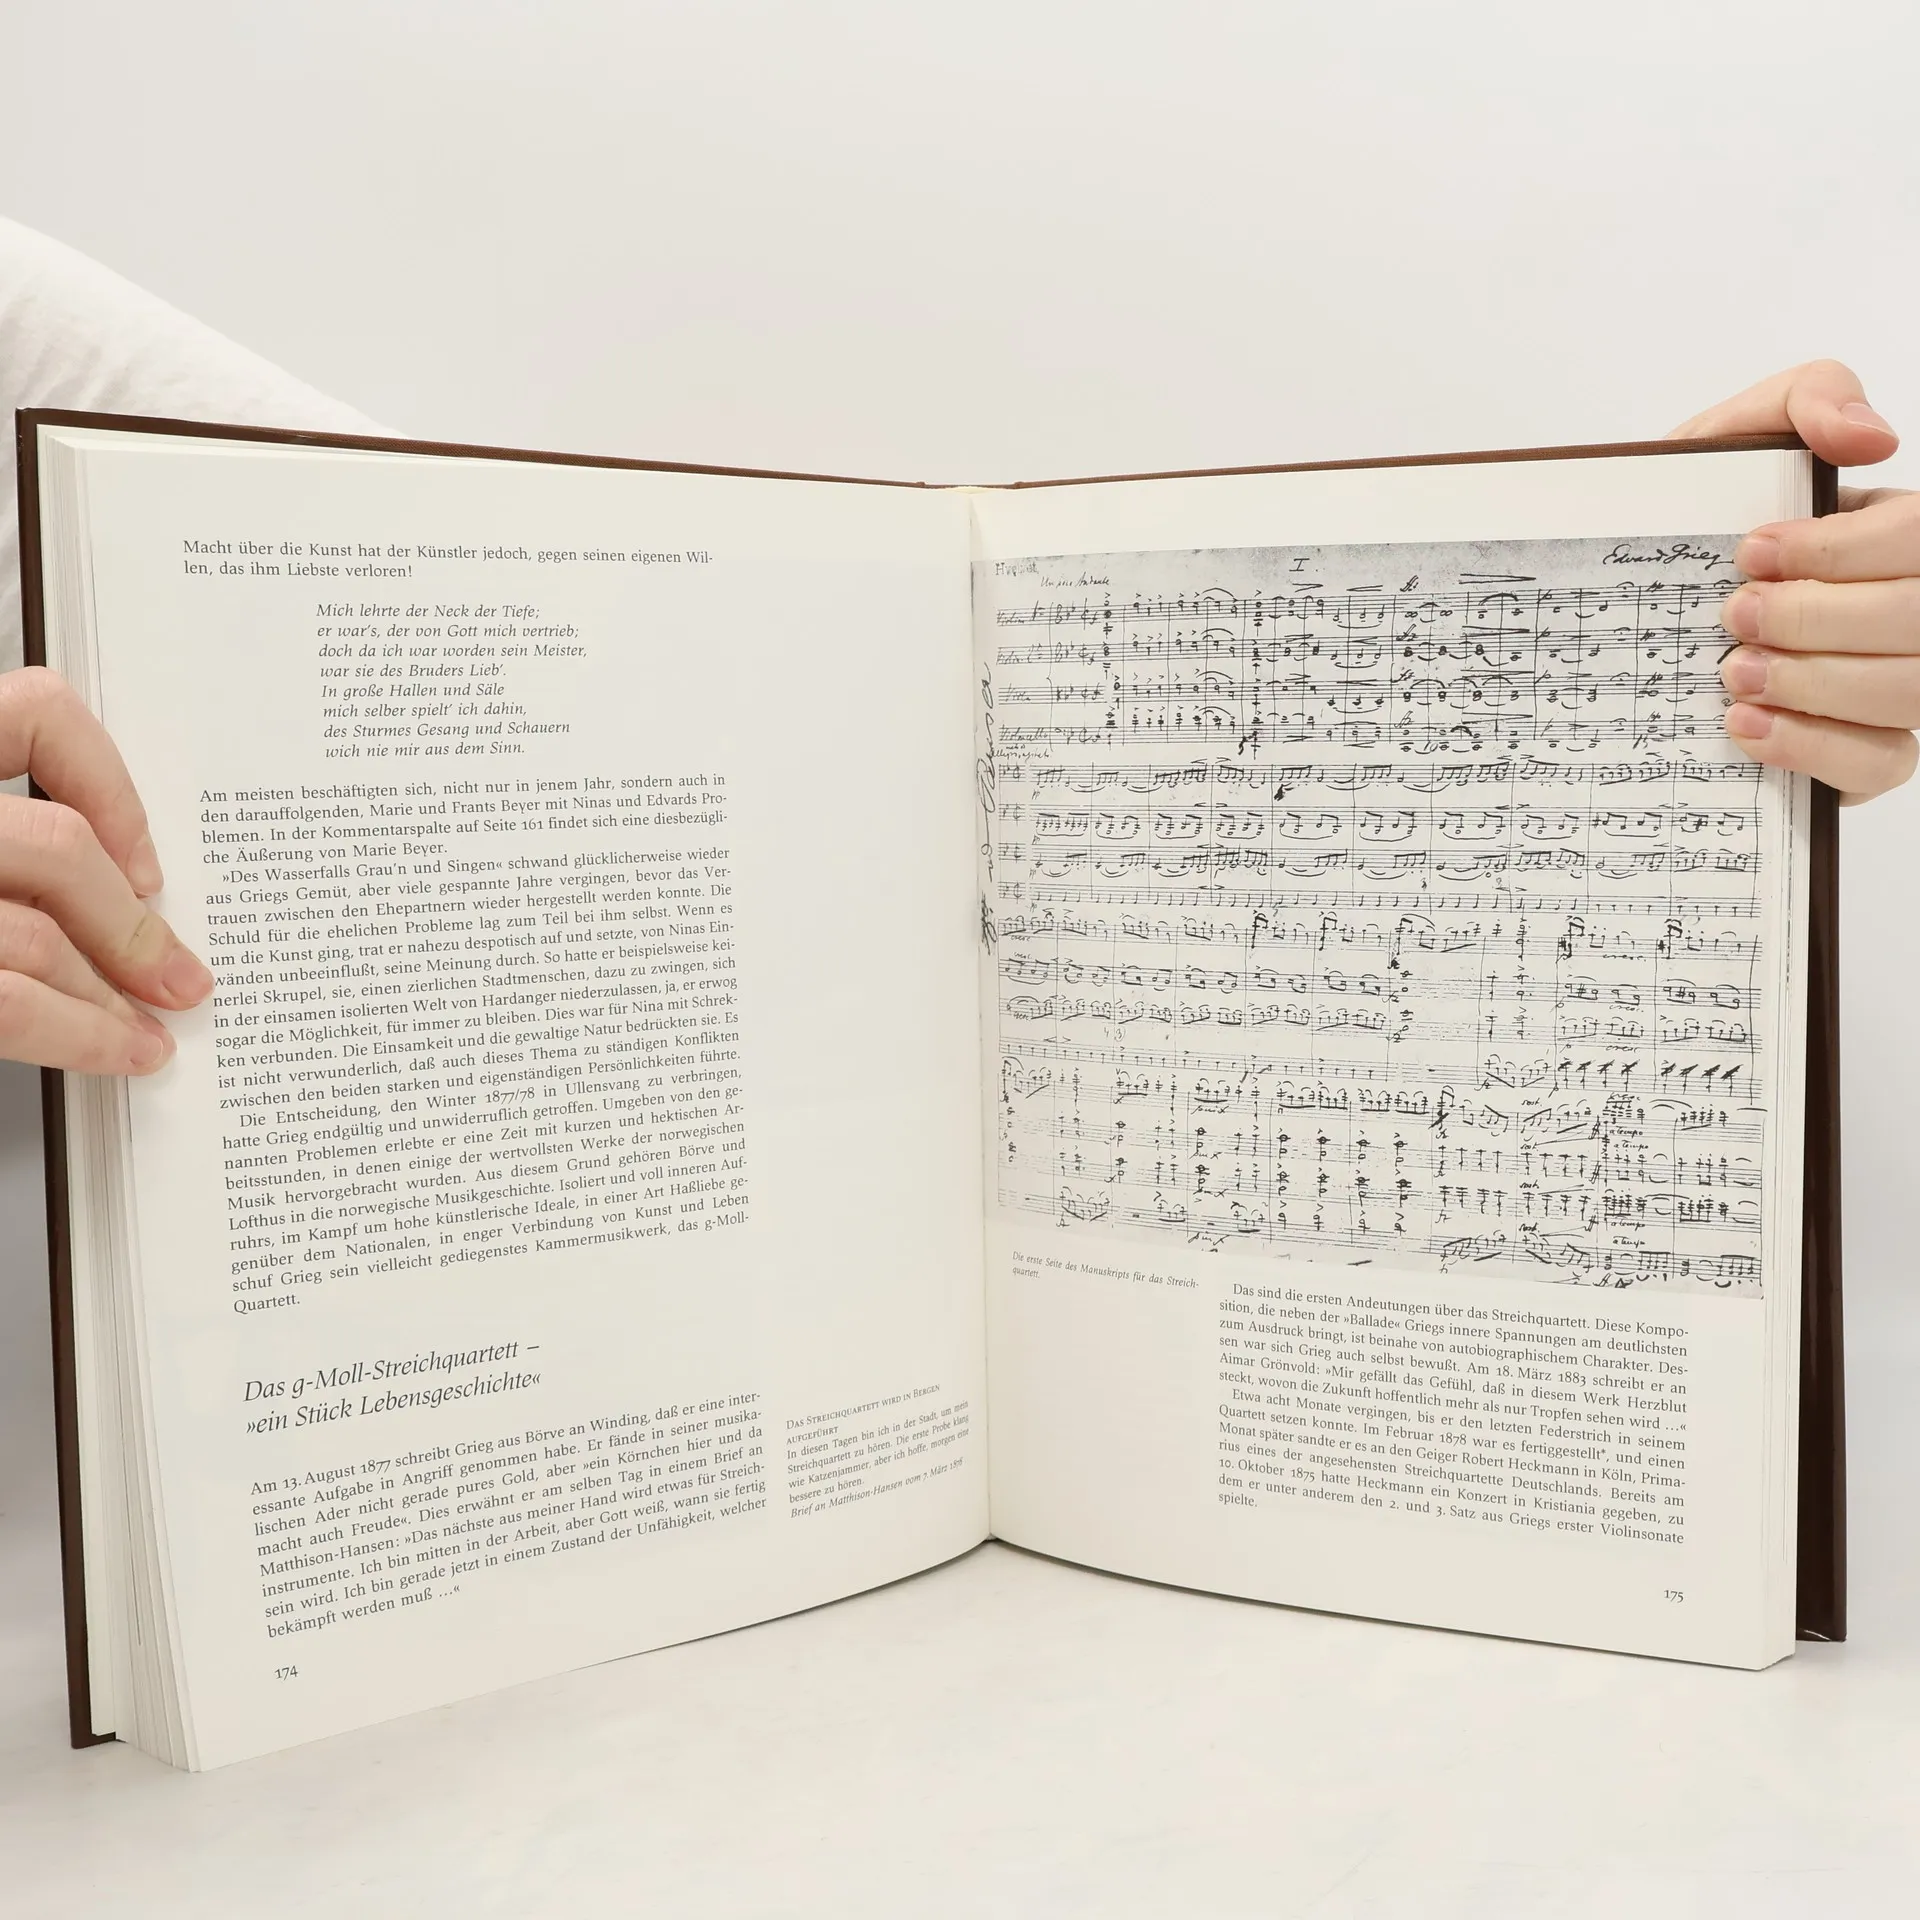 Macht über die Kunst hat der Künstler jedoch, gegen seinen eigenen Wil-
len, das ihm Liebste verloren!
Mich lehrte der Neck der Tiefe;
er war's, der von Gott mich vertrieb;
doch da ich war worden sein Meister,
war sie des Bruders Lieb'.
In große Hallen und Säle
mich selber spielt' ich dahin,
des Sturmes Gesang und Schauern
wich nie mir aus dem Sinn.
Am meisten beschäftigten sich, nicht nur in jenem Jahr, sondern auch in
den darauffolgenden, Marie und Frants Beyer mit Ninas und Edvards Pro-
blemen. In der Kommentarspalte auf Seite 161 findet sich eine diesbezügli-
che Äußerung von Marie Beyer.
»Des Wasserfalls Grau'n und Singen« schwand glücklicherweise wieder
aus Griegs Gemüt, aber viele gespannte Jahre vergingen, bevor das Ver-
trauen zwischen den Ehepartnern wieder hergestellt werden konnte. Die
Schuld für die ehelichen Probleme lag zum Teil bei ihm selbst. Wenn es
um die Kunst ging, trat er nahezu despotisch auf und setzte, von Ninas Ein-
wänden unbeeinflußt, seine Meinung durch. So hatte er beispielsweise kei-
nerlei Skrupel, sie, einen zierlichen Stadtmenschen, dazu zu zwingen, sich
in der einsamen isolierten Welt von Hardanger niederzulassen, ja, er erwog
sogar die Möglichkeit, für immer zu bleiben. Dies war für Nina mit Schrek-
ken verbunden. Die Einsamkeit und die gewaltige Natur bedrückten sie. Es
ist nicht verwunderlich, daß auch dieses Thema zu ständigen Konflikten
zwischen den beiden starken und eigenständigen Persönlichkeiten führte.
Die Entscheidung, den Winter 1877/78 in Ullensvang zu verbringen,
hatte Grieg endgültig und unwiderruflich getroffen. Umgeben von den ge-
nannten Problemen erlebte er eine Zeit mit kurzen und hektischen Ar-
beitsstunden, in denen einige der wertvollsten Werke der norwegischen
Musik hervorgebracht wurden. Aus diesem Grund gehören Börve und
Lofthus in die norwegische Musikgeschichte. Isoliert und voll inneren Auf-
ruhrs, im Kampf um hohe künstlerische Ideale, in einer Art Haßliebe ge-
genüber dem Nationalen, in enger Verbindung von Kunst und Leben
schuf Grieg sein vielleicht gediegenstes Kammermusikwerk, das g-Moll-
Quartett.
Das g-Moll-Streichquartett –
»ein Stück Lebensgeschichte«
Am 13. August 1877 schreibt Grieg aus Börve an Winding, daß er eine inter-
essante Aufgabe in Angriff genommen habe. Er fände in seiner musika-
lischen Ader nicht gerade pures Gold, aber »ein Körnchen hier und da
macht auch Freude«. Dies erwähnt er am selben Tag in einem Brief an
Matthison-Hansen: »Das nächste aus meiner Hand wird etwas für Streich-
instrumente. Ich bin mitten in der Arbeit, aber Gott weiß, wann sie fertig
sein wird. Ich bin gerade jetzt in einem Zustand der Unfähigkeit, welcher
bekämpft werden muß ...«
Das Streichquartett wird in Bergen
aufgeführt
In diesen Tagen bin ich in der Stadt, um mein
Streichquartett zu hören. Die erste Probe klang
wie Katzenjammer, aber ich hoffe, morgen eine
bessere zu hören.
Brief an Matthison-Hansen vom 7. März 1878
174
I.
Edvard Grieg
Un poco Andante
Die erste Seite des Manuskripts für das Streich-
quartett.
Das sind die ersten Andeutungen über das Streichquartett. Diese Kompo-
sition, die neben der »Ballade« Griegs innere Spannungen am deutlichsten
zum Ausdruck bringt, ist beinahe von autobiographischem Charakter. Des-
sen war sich Grieg auch selbst bewußt. Am 18. März 1883 schreibt er an
Aimar Grönvold: »Mir gefällt das Gefühl, daß in diesem Werk Herzblut
steckt, wovon die Zukunft hoffentlich mehr als nur Tropfen sehen wird ...«
Etwa acht Monate vergingen, bis er den letzten Federstrich in seinem
Quartett setzen konnte. Im Februar 1878 war es fertiggestellt*, und einen
Monat später sandte er es an den Geiger Robert Heckmann in Köln, Prima-
rius eines der angesehensten Streichquartette Deutschlands. Bereits am
10. Oktober 1875 hatte Heckmann ein Konzert in Kristiania gegeben, zu
dem er unter anderem den 2. und 3. Satz aus Griegs erster Violinsonate
spielte.
175